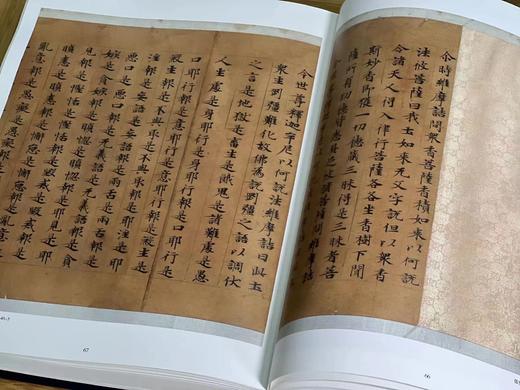 尒時維摩詰問衆香菩薩香積如來以何說
法彼菩薩曰我土如來无文字說但以衆香
令諸天人得入律行菩薩各各坐香樹下聞
斯妙香即獲一切德藏三昧得是三昧者菩
薩所有功德皆悉具足彼諸菩薩問維摩詰
66
今世尊釋迦牟尼以何說法維摩詰曰此土
衆生剛強難化故佛為說剛強之語以調伏
之言是地獄是畜生是餓鬼是諸難處是愚
人生處是身耶行是身耶行報是口耶行是
口耶行報是意耶行是意耶行報是煞生是
煞生報是不與取是不與取報是耶婬是耶
婬報是妄語是妄語報是兩舌是兩舌報是
惡口是惡口報是无義語是无義語報是貪
嫉是貪嫉報是瞋惱是瞋惱報是耶見是耶
見報是慳悋是慳悋報是毀戒是毀戒報是
瞋恚是瞋恚報是懈怠是懈怠報是亂意是
亂意報是愚癡是愚癡報是
67